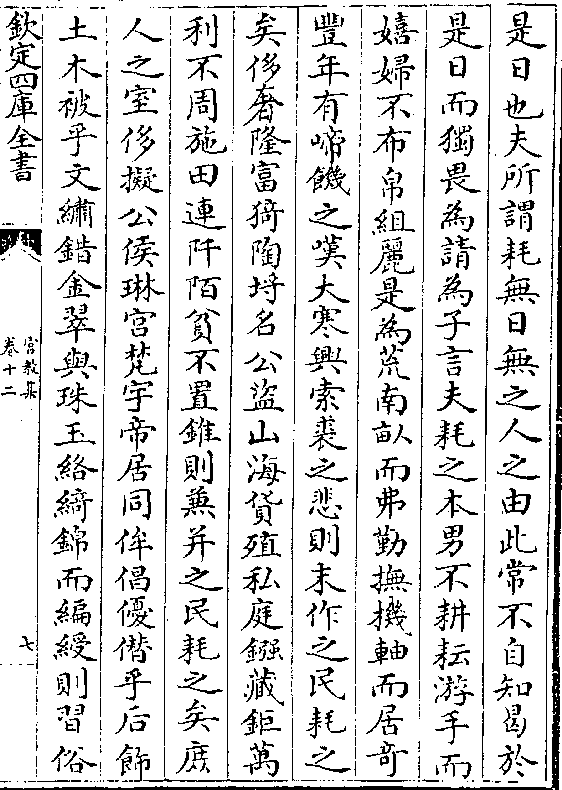 是日也夫所謂耗無日無之人之由此常不自知曷於
是日而獨畏為請為子言夫耗之本男不耕耘游手而
嬉婦不布帛組麗是為荒南畝而弗勤撫機軸而居奇
豐年有啼饑之嘆大寒興索裘之悲則末作之民耗之
矣侈奢隆富猗陶埒名公盜山海貨殖私庭鏹藏鉅萬
利不周施田連阡陌貧不置錐則兼并之民耗之矣庶
人之室侈擬公侯琳宫梵宇帝居同侔倡優僭乎后飾
土木被乎文繡錯金翠與珠玉絡綺錦而編綬則習俗
欽定四庫全書
宫教集
卷十二
七